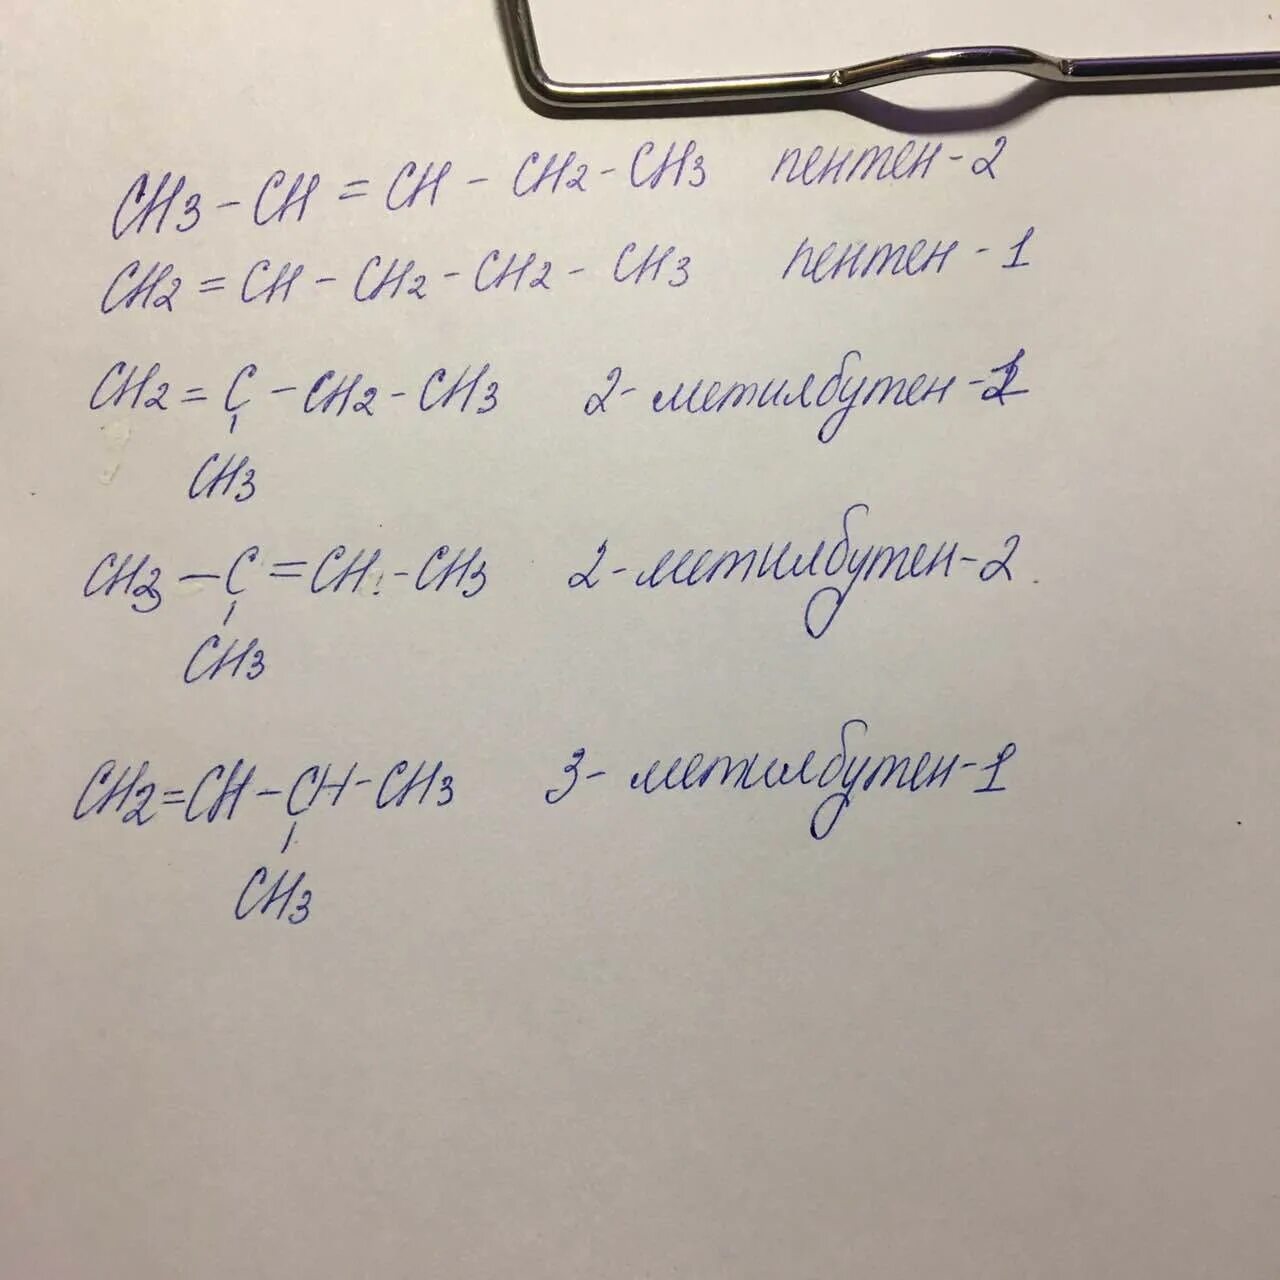 CH3 - CH = CH - CH2 - CH3 пентен - 2
CH2 = CH - CH2 - CH2 - CH3 пентен - 1
CH2 = C - CH2 - CH3 2- метилбутен -1
CH3
CH3 - C = CH - CH3 2- метилбутен - 2
CH3
CH2 = CH - CH - CH3 3- метилбутен -1
CH3